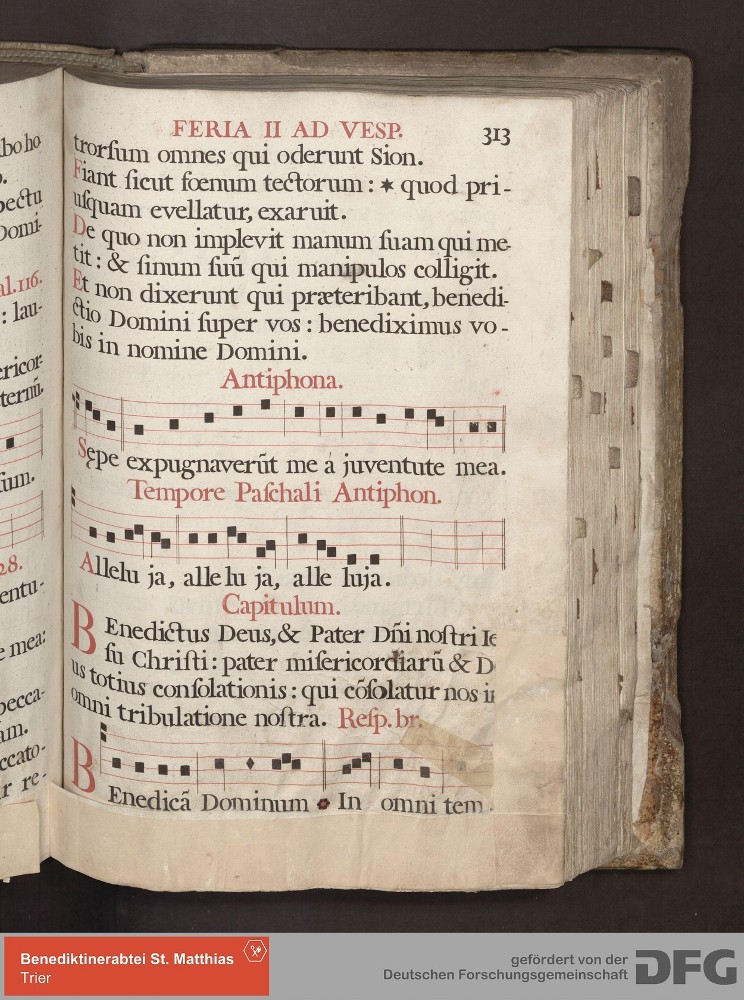 FERIA II AD VESP. 313
trorſum omnes qui oderunt Sion.
Fiant ſicut fœnum tectorum : * quod pri-
uſquam evellatur, exaruit.
De quo non implevit manum ſuam qui me-
tit : & ſinum ſuū qui manipulos colligit.
Et non dixerunt qui præteribant, benedi-
ctio Domini ſuper vos : benediximus vo-
bis in nomine Domini.
Antiphona.
Sępe expugnaverūt me á juventute mea.
Tempore Paſchali Antiphon.
Allelu ja, alle lu ja, alle luja.
Capitulum.
BEnedictus Deus, & Pater Dn̄i noſtri Ie
ſu Chriſti : pater miſericordiarū & D
us totius conſolationis : qui cōſolatur nos in
omni tribulatione noſtra. Reſp. br.
BEnedicā Dominum In omni tem
bo ho
pectu
Domi-
al. 116.
: lau-
ericor-
ternū.
ſum.
28.
entu-
e mea:
pecca-
am.
ccato-
r re-
Benediktinerabtei St. Matthias
Trier
gefördert von der
Deutschen Forschungsgemeinschaft
DFG